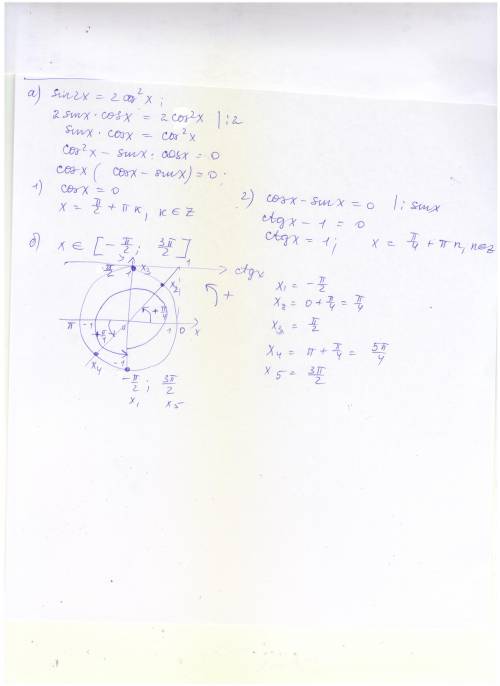 а) sin2x = 2cos²x ;
2sinx·cosx = 2cos²x |:2
sinx · cosx = cos²x
cos²x − sinx · cosx = 0
cosx ( cosx − sinx) = 0.
1) cosx = 0
x = π/2 + πк, к ∈ Z
2) cosx − sinx = 0 |: sinx
ctgx − 1 = 0
ctgx = 1; x = π/4 + πn, n∈Z
б) x ∈ [−π/2; 3π/2]
π/2 1 x₃ 1 ctgx
x₂
+
π −1 π/4 0 + π/4 1 0 x
x₄ −1
−π/2 ; 3π/2
x₁ x₅
x₁ = −π/2
x₂ = 0 + π/4 = π/4
x₃ = π/2
x₄ = π + π/4 = 5π/4
x₅ = 3π/2